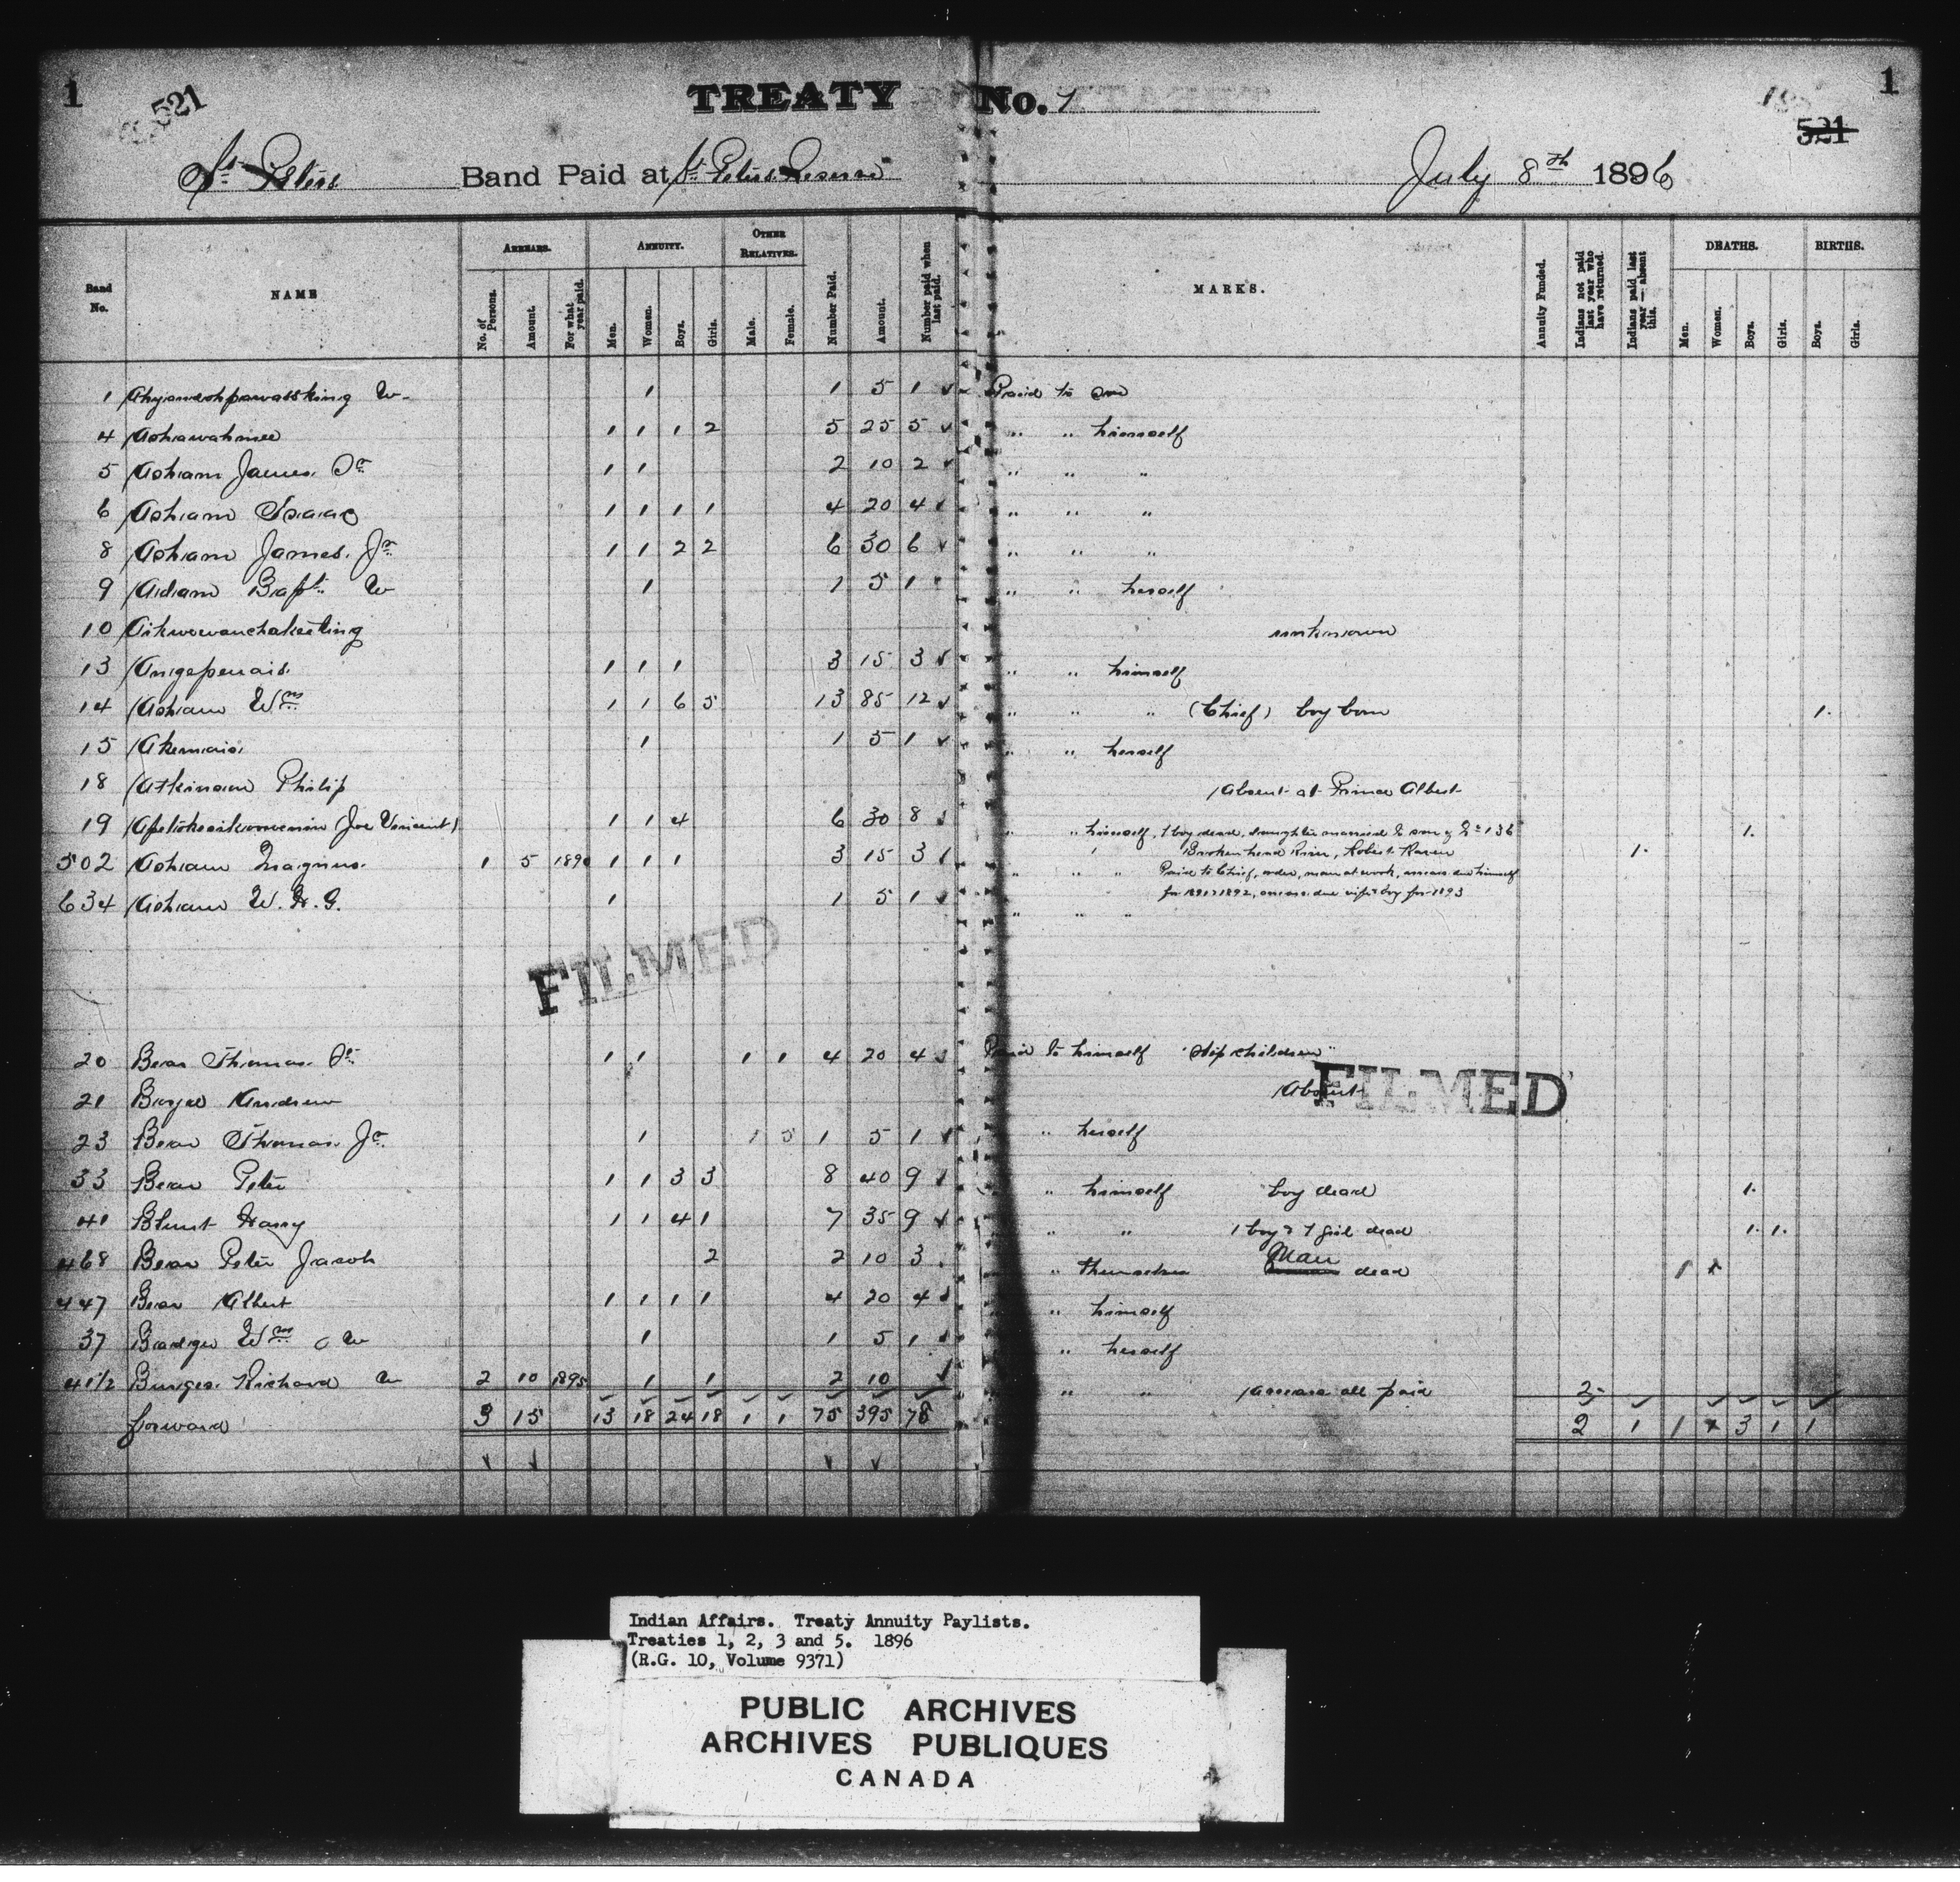 1 521 TREATY No. 1 1
521
St. Peters Band Paid at St. Peters Reserve July 8th 1896
Band No. NAME ARREARS. No. of Persons. Amount. For what year paid. ANNUITY. Men. Women. Boys. Girls. OTHER RELATIVES. Male. Female. Number Paid. Amount. Number paid when last paid. MARKS. Annuity Funded. Indians not paid last year who have returned. Indians paid last year — absent this. DEATHS. Men. Women. Boys. Girls. BIRTHS. Boys. Girls.
1 W 1 1 5 1 Paid to son
4 Ashawahmee 1 1 1 2 5 25 5 " " himself
5 Asham James Sr 1 1 2 10 2 " " "
6 Asham Isaac 1 1 1 1 4 20 4 " " "
8 Asham James Jr 1 1 2 2 6 30 6 " " "
9 Adam Bapt. W 1 1 5 1 " " herself
10 unknown
13 Anigepenais 1 1 1 3 15 3 " " himself
14 Asham Wm 1 1 6 5 13 85 12 " " " (Chief) boy born 1
15 Akemais 1 1 5 1 " " herself
18 Atkinson Philip Absent at Prince Albert
19 (Joe Vincent) 1 1 4 6 30 8 " " himself, 1 boy dead, daughter married to son of No 136 1
502 Asham Magnus 1 5 1890 1 1 1 3 15 3 Brokenhead River, Robert Raven 1
" " " Paid to Chief, order, man at work, arrears due himself
634 Asham W. H. G. 1 1 5 1 for 1891 & 1892, arrears due wife & boy for 1893
" " "
FILMED
20 Bear Thomas Sr 1 1 1 1 4 20 4 Paid to himself "Step children"
21 Andrew Absent
FILMED
23 Bear Thomas Jr 1 1 5 1 5 1 " herself
33 Bear Peter 1 1 3 3 8 40 9 " himself boy dead 1
41 Blunt Harry 1 1 4 1 7 35 9 " " 1 boy & 1 girl dead 1 1
468 Bear Peter Jacob 2 2 10 3 " themselves Man dead 1
447 Bear Albert 1 1 1 1 4 20 4 " himself
37 Badger Wm W 1 1 5 1 " herself
41½ Burges Richard W 2 10 1895 1 1 2 10 " " arrears all paid 2
forward 3 15 13 18 24 18 1 1 75 395 78 2 1 1 3 1 1
Indian Affairs. Treaty Annuity Paylists.
Treaties 1, 2, 3 and 5. 1896
(R.G. 10, Volume 9371)
PUBLIC ARCHIVES
ARCHIVES PUBLIQUES
CANADA